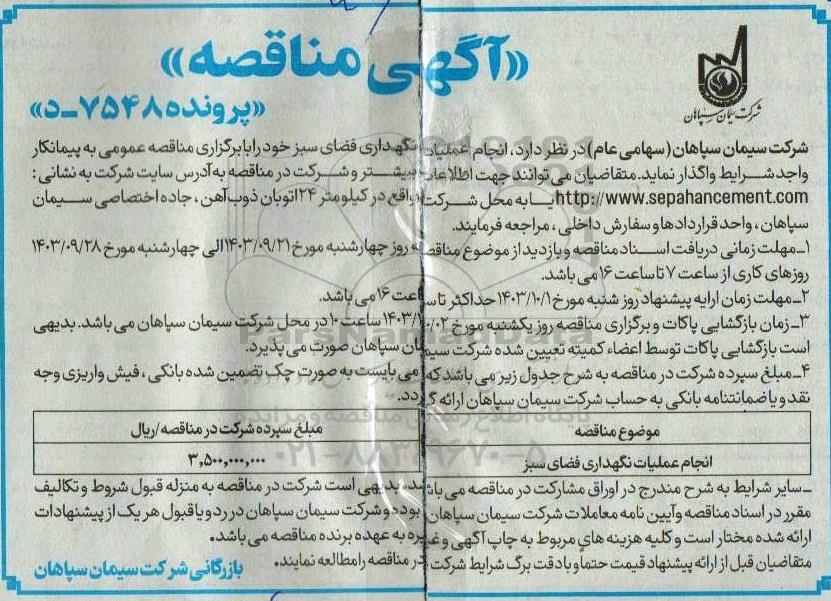 «آگهی مناقصه»
«پرونده ۷۵۴۸-د»
شرکت سیمان سپاهان
شرکت سیمان سپاهان (سهامی عام) در نظر دارد، انجام عملیات نگهداری فضای سبز خود را با برگزاری مناقصه عمومی به پیمانکار
واجد شرایط واگذار نماید. متقاضیان می توانند جهت اطلاعات بیشتر و شرکت در مناقصه به آدرس سایت شرکت به نشانی :
http://www.sepahancement.com یا به محل شرکت واقع در کیلومتر ۲۴ اتوبان ذوب آهن ، جاده اختصاصی سیمان
سپاهان ، واحد قراردادها و سفارش داخلی ، مراجعه فرمایند.
۱- مهلت زمانی دریافت اسناد مناقصه و بازدید از موضوع مناقصه روز چهارشنبه مورخ ۱۴۰۳/۰۹/۲۱ الی چهارشنبه مورخ ۱۴۰۳/۰۹/۲۸
روزهای کاری از ساعت ۷ تا ساعت ۱۶ می باشد.
۲- مهلت زمان ارایه پیشنهاد روز شنبه مورخ ۱۴۰۳/۱۰/۱ حداکثر تا ساعت ۱۶ می باشد.
۳- زمان بازگشایی پاکات و برگزاری مناقصه روز یکشنبه مورخ ۱۴۰۳/۱۰/۰۲ ساعت ۱۰ در محل شرکت سیمان سپاهان می باشد. بدیهی
است بازگشایی پاکات توسط اعضاء کمیته تعیین شده شرکت سیمان سپاهان صورت می پذیرد.
۴- مبلغ سپرده شرکت در مناقصه به شرح جدول زیر می باشد که می بایست به صورت چک تضمین شده بانکی ، فیش واریزی وجه
نقد و یا ضمانتنامه بانکی به حساب شرکت سیمان سپاهان ارائه گردد.
موضوع مناقصه مبلغ سپرده شرکت در مناقصه/ریال
انجام عملیات نگهداری فضای سبز ۳,۵۰۰,۰۰۰,۰۰۰
- سایر شرایط به شرح مندرج در اوراق مشارکت در مناقصه می باشد. بدیهی است شرکت در مناقصه به منزله قبول شروط و تکالیف
مقرر در اسناد مناقصه و آیین نامه معاملات شرکت سیمان سپاهان بوده و شرکت سیمان سپاهان در رد و یا قبول هر یک از پیشنهادات
ارائه شده مختار است و کلیه هزینه های مربوط به چاپ آگهی و غیره به عهده برنده مناقصه می باشد.
متقاضیان قبل از ارائه پیشنهاد قیمت حتما و با دقت برگ شرایط شرکت در مناقصه را مطالعه نمایند.
بازرگانی شرکت سیمان سپاهان
ParsNamadData
پایگاه اطلاع رسانی مناقصه و مزایده
۰۲۱-۸۸۳۴۹۶۷۰-۵